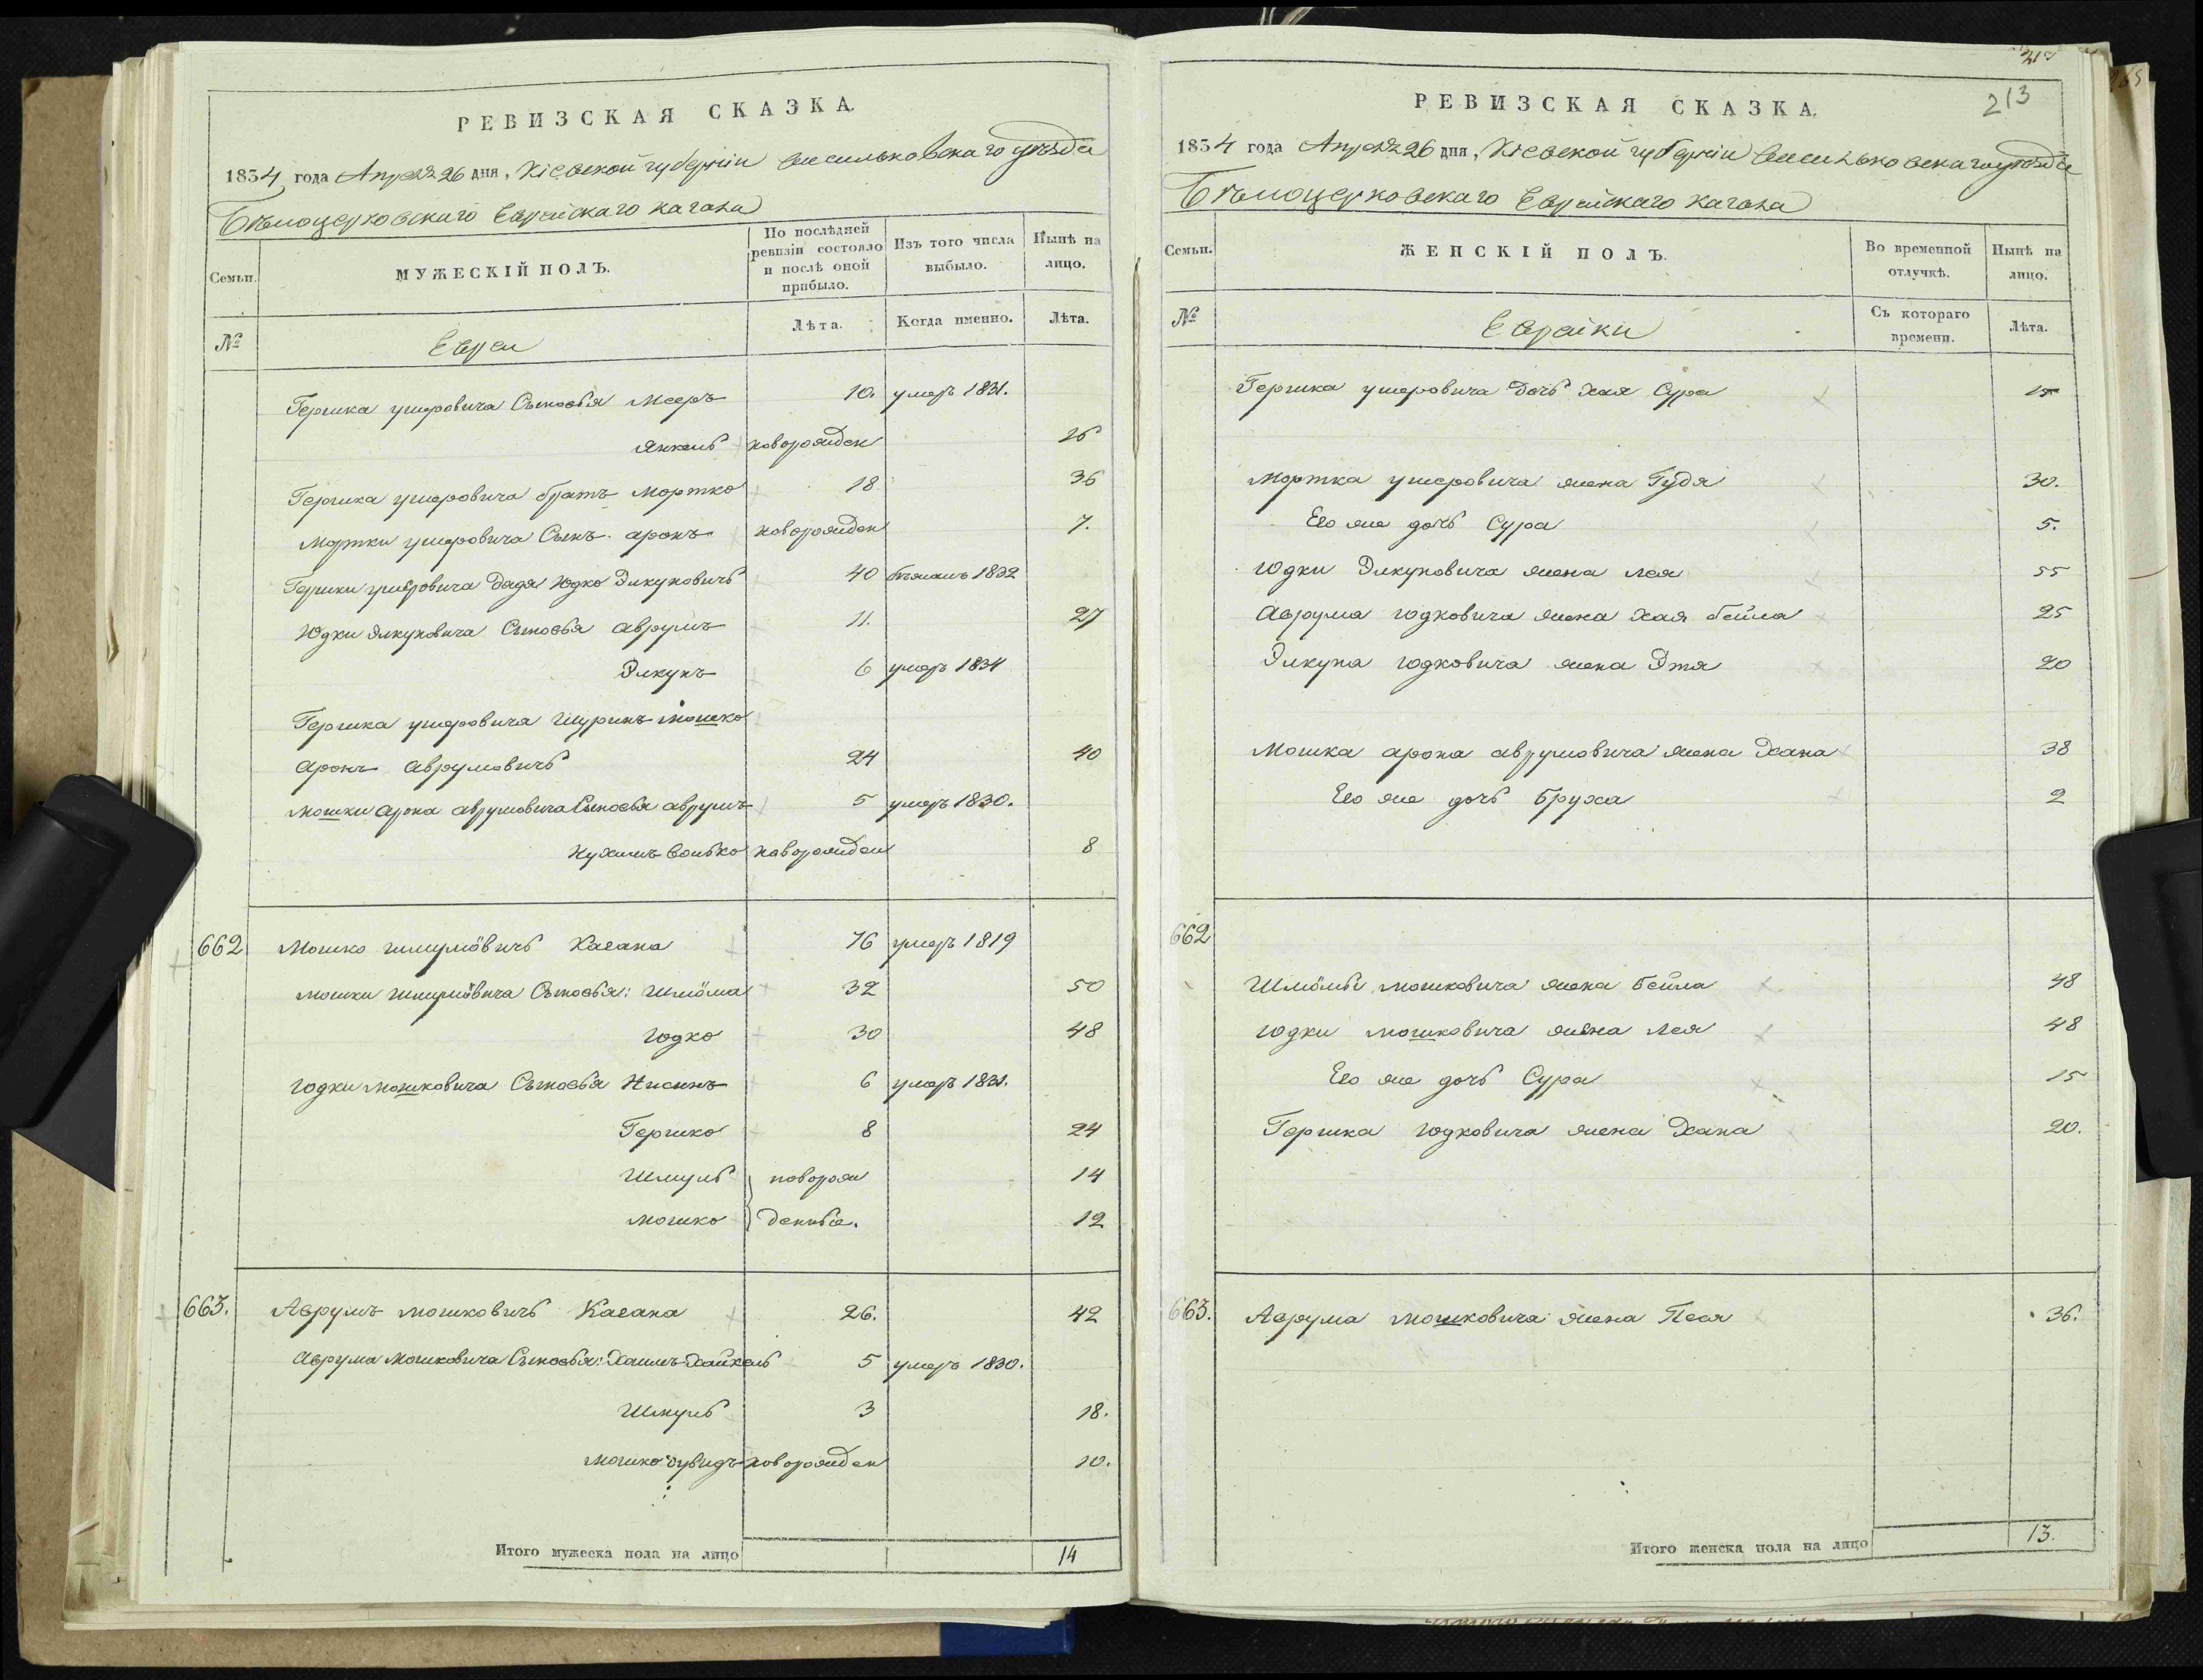 РЕВИЗСКАЯ СКАЗКА.
1834 года Апреля 26 дня, Кіевской губерніи Васильковскаго уѣзда
Бѣлоцерковскаго Еврейскаго кагала
Семьи.
МУЖЕСКІЙ ПОЛЪ.
По послѣдней ревизіи состояло и послѣ оной прибыло.
Изъ того числа выбыло.
Нынѣ на лицо.
№
Евреи
Лѣта.
Когда именно.
Лѣта.
Гершка ушеровича Сыновья Мееръ 10. умеръ 1831.
Янкель новорожден
Гершка ушеровича братъ Мортко 18 36
Мортки ушеровича Сынъ аронъ новорожден 7.
Гершки ушеровича дядя Юдко Элкуновичъ 40 бѣжалъ 1832
Юдки Элкуновича Сыновья аврумъ 11. 27
Элкунъ 6 умеръ 1834
Гершка ушеровича шуринъ мошко
аронъ аврумовичъ 24 40
мошки арона аврумовича Сыновья аврумъ 5 умеръ 1830.
Нухимъ волько новорожден 8
662 Мошко шмулёвичъ Кагана 76 умеръ 1819
мошки шмулёвича Сыновья: Шлёма 32 50
Юдко 30 48
Юдки мошковича Сыновья Нисинъ 6 умеръ 1831.
Гершко 8 24
Шмуль новорож 14
мошко денные. 12
663. Аврумъ мошковичъ Кагана 26. 42
аврума мошковича Сыновья: Хаимъ Хайкель 5 умеръ 1830.
Шмуль 3 18.
мошко дувидъ новорожден 10.
Итого мужеска пола на лицо 14
213
РЕВИЗСКАЯ СКАЗКА.
1834 года Апреля 26 дня, Кіевской губерніи Васильковскаго уѣзда
Бѣлоцерковскаго Еврейскаго кагала
Семьи.
ЖЕНСКІЙ ПОЛЪ.
Во временной отлучкѣ.
Нынѣ на лицо.
№
Еврейки
Съ котораго времени.
Лѣта.
Гершка ушеровича дочь Хая Сура 15
Мортка ушеровича жена Гудя 30.
Его же дочь Сура 5.
Юдки Элкуновича жена Лея 55
Аврума юдковича жена Хая бейла 25
Элкуна юдковича жена Этя 20
Мошка арона аврумовича жена Хана 38
Его же дочь Бруха 2
662
Шлёмы мошковича жена бейла 48
Юдки мошковича жена Лея 48
Его же дочь Сура 15
Гершка юдковича жена Хана 20.
663. Аврума мошковича жена Песя 36.
Итого женска пола на лицо 13.